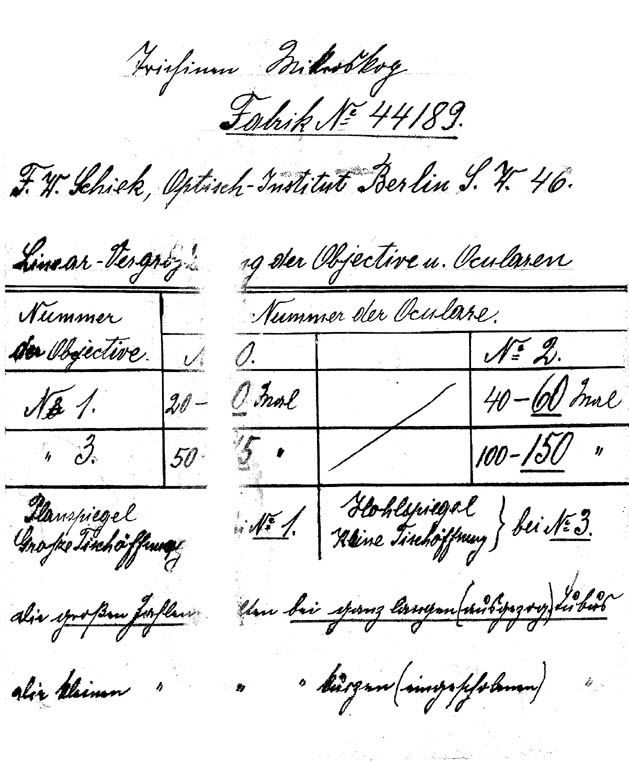 Trichinen Mikroskop
Fabrik No 44189.
F. W. Schiek, Optisch-Institut Berlin S. W. 46.
Linear-Vergröß ng der Objective u. Ocularen
Nummer der Objective. Nummer der Oculare.
N 0. No 2.
No 1. 20- 0 mal 40-60 mal
" 3. 50 5 " 100-150 "
Planspiegel
Große Tischöffnung bei No 1.
Hohlspiegel
Kleine Tischöffnung } bei No 3.
die großen Zahlen lten bei ganz langen (ausgezog.) Tubus
die kleinen " " " kurzen (eingeschobenen) "